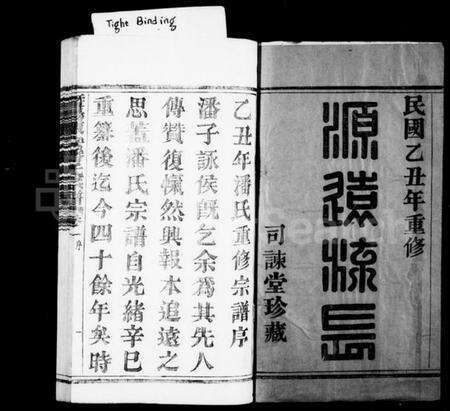 Tight Binding
民國乙丑年重修
源遠流長
司諫堂珍藏
乙丑年潘氏重修宗譜序
潘子詠侯既乞余爲其先人
傳贊復慨然興報本追遠之
思葢潘氏宗譜自光緒辛巳
重纂後迄今四十餘年矣時